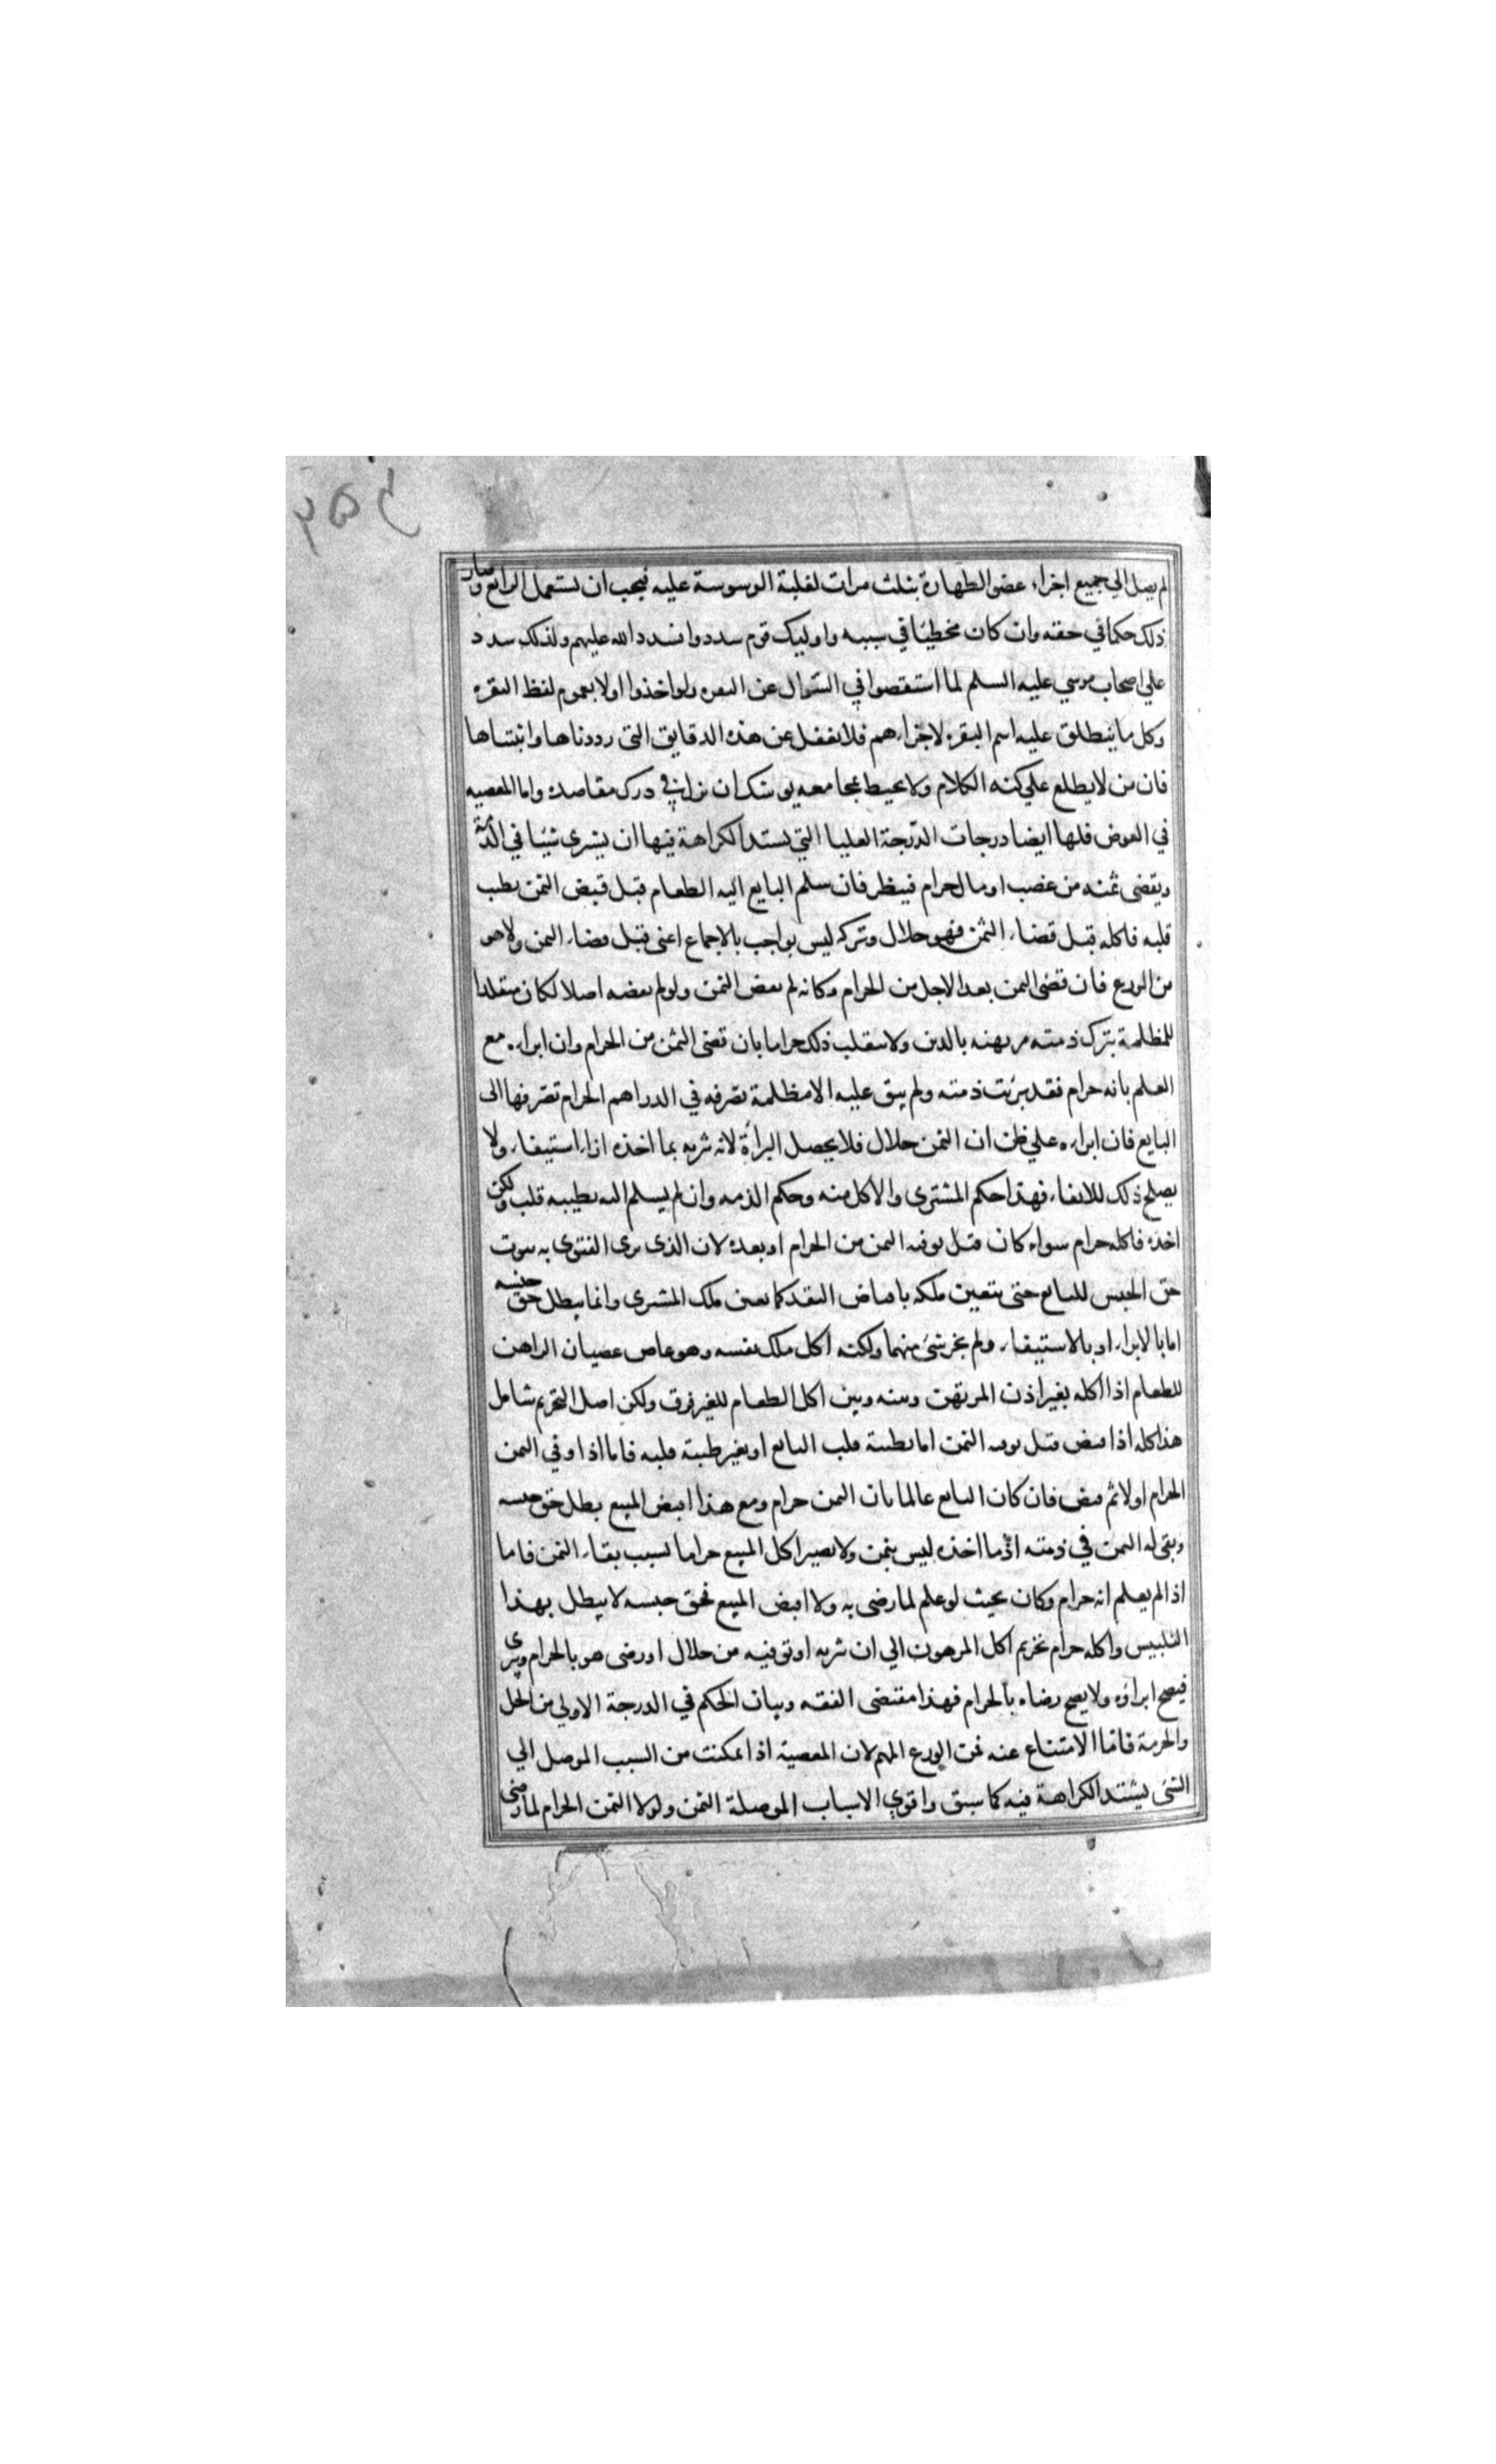 لم يصل الي جميع اجزاء عضو الطهارة بثلث مرات لغلبة الوسوسة عليه فيجب ان يستعمل الرابع وصار
ذلك حكما في حقه وان كان مخطيا في سببه واوليك قوم سددوا فسدد الله عليهم ولذلك سدد
علي اصحاب موسي عليه السلم لما استقصوا في السوال عن البقره ولو اخذوا اولا بعموم لفظ البقره
وكل ما ينطلق عليه اسم البقره لاجزاءهم فلا تغفل عن هذه الدقايق التي رددناها واثبتناها
فان من لا يطلع علي كنه الكلام ولا يحيط بمجامعه يوشك ان يزل في درك مقاصده واما المعصيه
في العوض فلها ايضا درجات الدرجة العليا التي تستد الكراهة فيها ان يشري شيئا في الذمة
ويقضى ثمنه من غصب او مال حرام فينظر فان سلم البايع اليه الطعام قبل قبض الثمن بطيب
قلبه فاكله قبل قضاء الثمن فهو حلال وتركه ليس بواجب بالاجماع اعني قبل قضاء الثمن ولا هو
من الورع فان قضى الثمن بعد الاجل من الحرام وكانه لم يقض الثمن ولو لم يقضه اصلا لكان متقلدا
للمظلمة بترك ذمته مرتهنه بالدين ولا ينقلب ذلك حراما بان قضى الثمن من الحرام وان ابراء مع
العلم بانه حرام فقد برئت ذمته ولم يبق عليه الا مظلمة تصرفه في الدراهم الحرام تصرفها الى
البايع فان ابراه علي ظن ان الثمن حلال فلا يحصل البرأة لانه بريه بما اخذه ابراء استيفاء ولا
يصلح ذلك للايفاء فهذا حكم المشترى والاكل منه وحكم الذمه وان لم يسلم اليه بطيبه قلب ولكن
اخذه فاكله حرام سواء كان قبل توفيه الثمن من الحرام او بعده لان الذى يرى الفتوى به ثبوت
حق الحبس للبايع حتى يتعين ملكه باقباض النقد كما تعين ملك المشترى وانما يبطل حق حبسه
اما بالابراء او بالاستيفاء ولم يجر شئ منهما ولكنه اكل ملك نفسه وهو عاص عصيان الراهن
للطعام اذا اكله بغير اذن المرتهن وبينه وبين اكل الطعام للغير فرق ولكن اصل التحريم شامل
هذا كله اذا قبض قبل توفيه الثمن اما بطيبة قلب البايع او بغير طيبة قلبه فاما اذا وفي الثمن
الحرام اولا ثم قبض فان كان البايع عالما بان الثمن حرام ومع هذا اقبض المبيع بطل حق حبسه
وبقي له الثمن في ذمته اذ ما اخذه ليس بثمن ولا يصير اكل المبيع حراما بسبب بقاء الثمن فاما
اذا لم يعلم انه حرام وكان بحيث لو علم لما رضى به ولا اقبض المبيع فحق حبسه لا يبطل بهذا
التلبيس واكله حرام تحريم اكل المرهون الي ان بريه او توفيه من حلال او رضى هو بالحرام وبرى
فيصح ابراؤه ولا يصح رضاه بالحرام فهذا مقتضى الفقه وبيان الحكم في الدرجة الاولي من الحل
والحرمة فاما الامتناع عنه فمن الورع المهم لان المعصية اذا تمكنت من السبب الموصل الي
الشئ يشتد الكراهة فيه كما سبق واقوي الاسباب الموصلة الثمن ولولا الثمن الحرام لما رضى